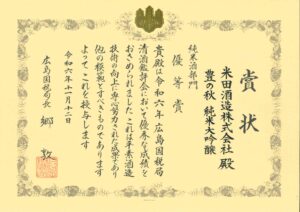 賞状
米田酒造株式会社 殿
豊の秋 純米大吟醸
純米酒部門
優等賞
貴殿は令和六年広島国税局
清酒鑑評会において優秀な成績を
おさめられましたこれは平素酒造
技術の向上に専心努力された成果であり
他の模範とすべきものであります
よってこれを授与します
令和六年十一月十二日
広島国税局長 郷 敦